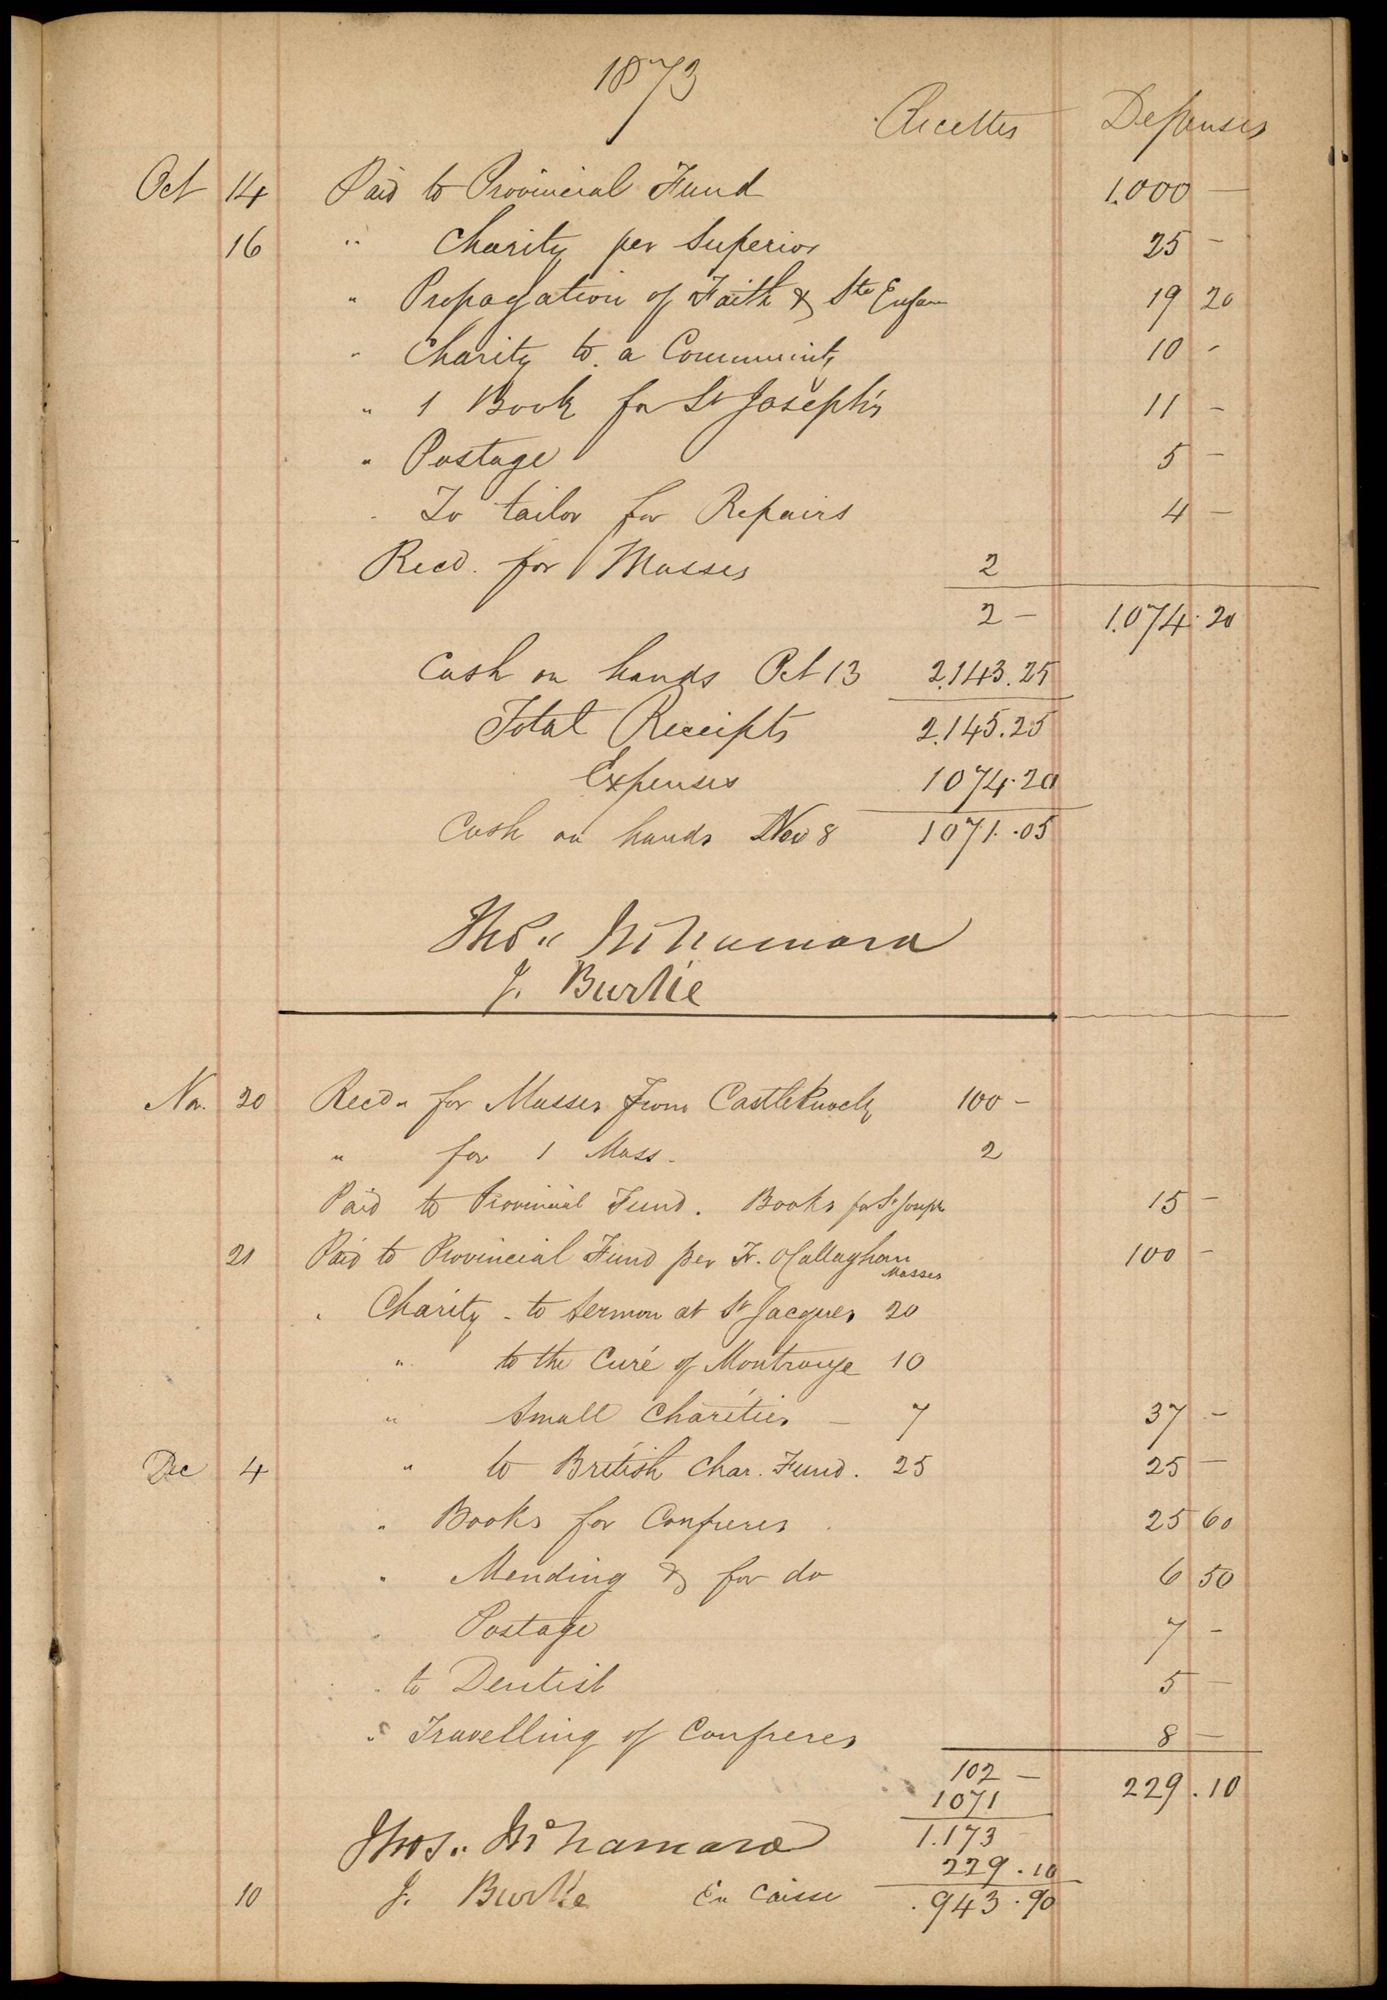 1873
Recettes Depenses
Oct 14 Paid to Provincial Fund 1.000 —
16 " Charity per Superior 25 —
" Propagation of Faith & Ste Enfan 19 20
" Charity to a Community 10 -
" 1 Book for St Joseph's 11 —
" Postage 5 —
" To tailor for Repairs 4 —
Recd. for Masses 2
2 — 1.074.20
Cash on hands Oct 13 2.143.25
Total Receipts 2.145.25
Expenses 1074.20
Cash on hands Nov 8 1071.05
Thos. McNamara
J. Burke
Nov. 20 Recd. for Masses from Castleknock 100 —
" for 1 Mass - 2
Paid to Provincial Fund. Books for St Joseph 15 —
21 Paid to Provincial Fund per Fr. O'Callaghan Masses 100 —
" Charity - to Sermon at St Jacques 20
" to the Curé of Montrouge 10
" Small Charities — 7 37 —
Dec 4 " to British Char. Fund. 25 25 —
" Books for Confreres 25 60
" Mending & for do 6 50
" Postage 7 —
" to Dentist 5 —
" Travelling of Confreres 8 —
102 — 229.10
1071
1.173
Thos. McNamara 229.10
10 J. Burke En Caisse 943.90